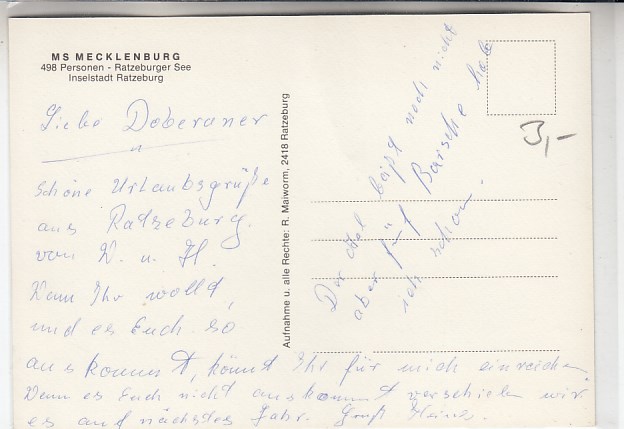 MS MECKLENBURG
498 Personen - Ratzeburger See
Inselstadt Ratzeburg
Liebe Doberaner
Schöne Urlaubsgrüße
aus Ratzeburg.
von W. u. H.
Wenn Ihr wollt,
und es Euch so
auskommt, könnt Ihr für mich einreichen.
Wenn es Euch nicht auskommt verschieben wir
es auf nächstes Jahr. Gruß Heinz.
Aufnahme u. alle Rechte: R. Maiworm, 2418 Ratzeburg
Der Aal beißt noch nicht
aber fünf Barsche habe
ich schon.
3,-